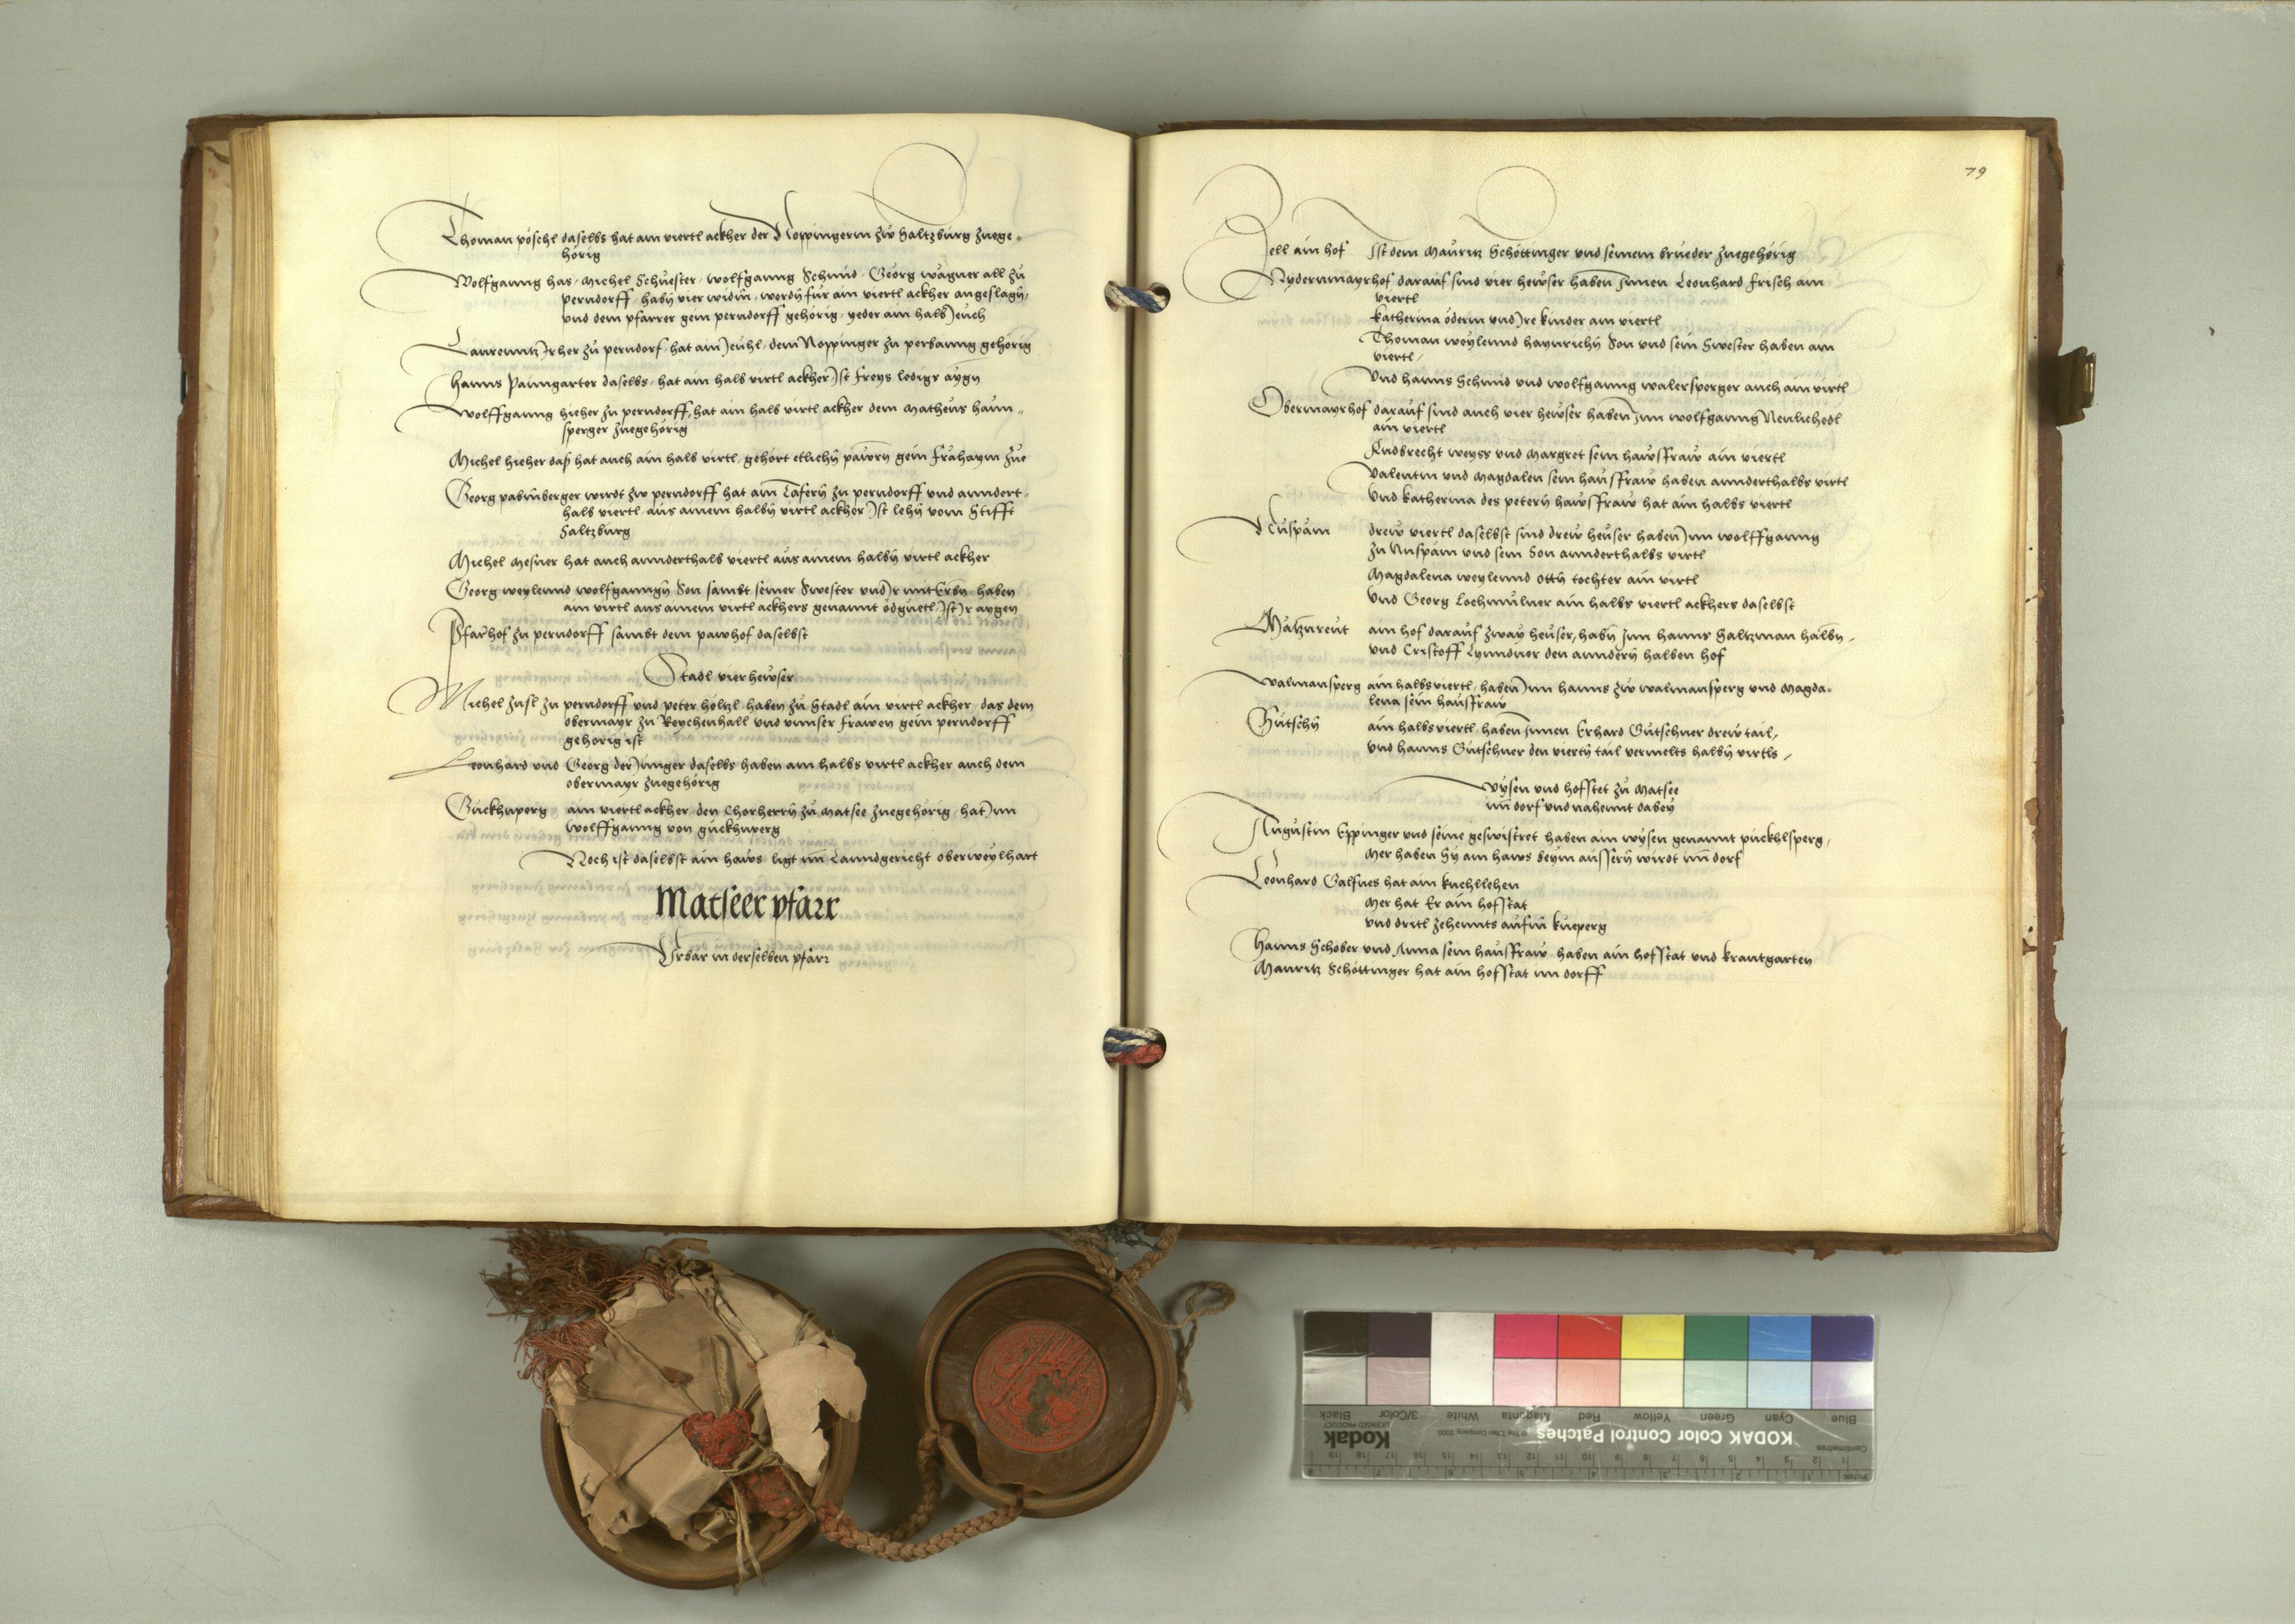 Thoman pöschl daselbs hat ain viertl ackher der Noppingerin zw Saltzburg zuege„
hörig
Wolfganng has, Michel Schuester, wolfganng Schmid, Georg wagner all zu
perndorff, habn vier widm, werdn für ain viertl ackher angeslagn,
und dem pfarrer gein perndorff gehörig, yeder ain halb Jeuch
Laurenntz Irher zu perndorf, hat ain Jeuhl, dem Noppinger zu perbanng gehörig
Hanns Paumgarter daselbs, hat ain halb virtl ackher Ist freys ledigs aygn
Wolffganng hieher zu perndorff, hat ain halb virtl ackher dem Matheus haun„
sperger zuegehörig
Michel hieher das hat auch ain halb virtl, gehört etlichn pawrn gein frahaym zue
Georg pabmberger wirdt zw perndorff hat ain Tafern zu perndorff und anndert„
halb viertl, aus ainem halbn virtl ackher Ist lehn vom Stifft
Saltzburg
Michel Mesner hat auch annderthalb viertl aus ainem halbn virtl ackher
Georg weylennd wolfganngn Son sambt seiner Swester und Ir mitErbn haben
ain virtl aus ainem virtl ackhers genannt ödguetl, Ist Ir aygen
Pfarhof zu perndorff sambt dem pawhof daselbst
Stadl vier hewser
Michel Zusl zu perndorff und peter höltzl, haben zu Stadl ain virtl ackher, das dem
obermayr zu Reychenhall und unnser frawen gein perndorff
gehorig ist
Leonhard und Georg der Junger daselbs haben ain halbs virtl ackher auch dem
obermayr zuegehörig
Guckhnperg ain viertl ackher, den Chorherrn zu Matsee zuegehörig, hat Inn
wolffganng von guckhnperg
Noch ist daselbst ain haws ligt im Lanndgericht oberweylhart
Matseer pfarr
Urbar in derselben pfarr
79
Zell ain hof Ist dem Mauritz Schöttinger und seinem brueder zuegehörig
Nydernmayrhof darauf sind vier hewser haben Innen Leonhard frisch ain
viertl
Katherina öderin und Ire kinder ain viertl
Thoman weylennd haynrichn Son und sein Swester haben ain
viertl,
Und hanns Schmid und wolfganng walersperger auch ain virtl
Obermayrhof darauf sind auch vier hewser haben Inn wolfganng Neulichedl
ain viertl
Ruedbrecht weyss und Margret sein hawsfraw ain viertl
Valentin und Magdalen sein hausfraw haben annderthalbs virtl
Und katherina des petern hawsfraw hat ain halbs viertl
Nuspam drew viertl daselbst sind drew heuser haben Inn wolffganng
zu Nuspam und sein Son annderthalbs virtl
Magdalena weylennd Ottn tochter ain virtl
Und Georg Lochmulner ain halbs viertl ackhers daselbst
Matznreut ain hof darauf zway heuser, habn Inn hanns Saltzman halbn,
und Cristoff Lynndner den anndern halben hof
Walmansperg ain halbs viertl, haben Inn hanns zw walmansperg und Magda„
lena sein hausfraw
Gutschn ain halbs viertl, haben Innen Erhard Gutschner drew tail,
und hanns Gutschner den viertn tail vermelts halbn virtls,
Wysen und hofstet zu Matsee
im dorf und nahennt dabey
Augustin Eppinger und seine geswistret haben ain wysen genannt puckhlsperg,
Mer haben Sy ain haws beym aussern wirdt im dorf
Leonhard Galsues hat ain kuchllehen
Mer hat Er ain hofstat
und dritl zehennts aufm kueperg
Hanns Schober und Anna sein hausfraw, haben ain hofstat und krautgarten
Mauritz Schöttinger hat ain hofstat im dorff
Blue Cyan Green Yellow Red Magenta White 3/Color Black
KODAK Color Control Patches
Kodak
LICENSED PRODUCT
Centimetres
Inches